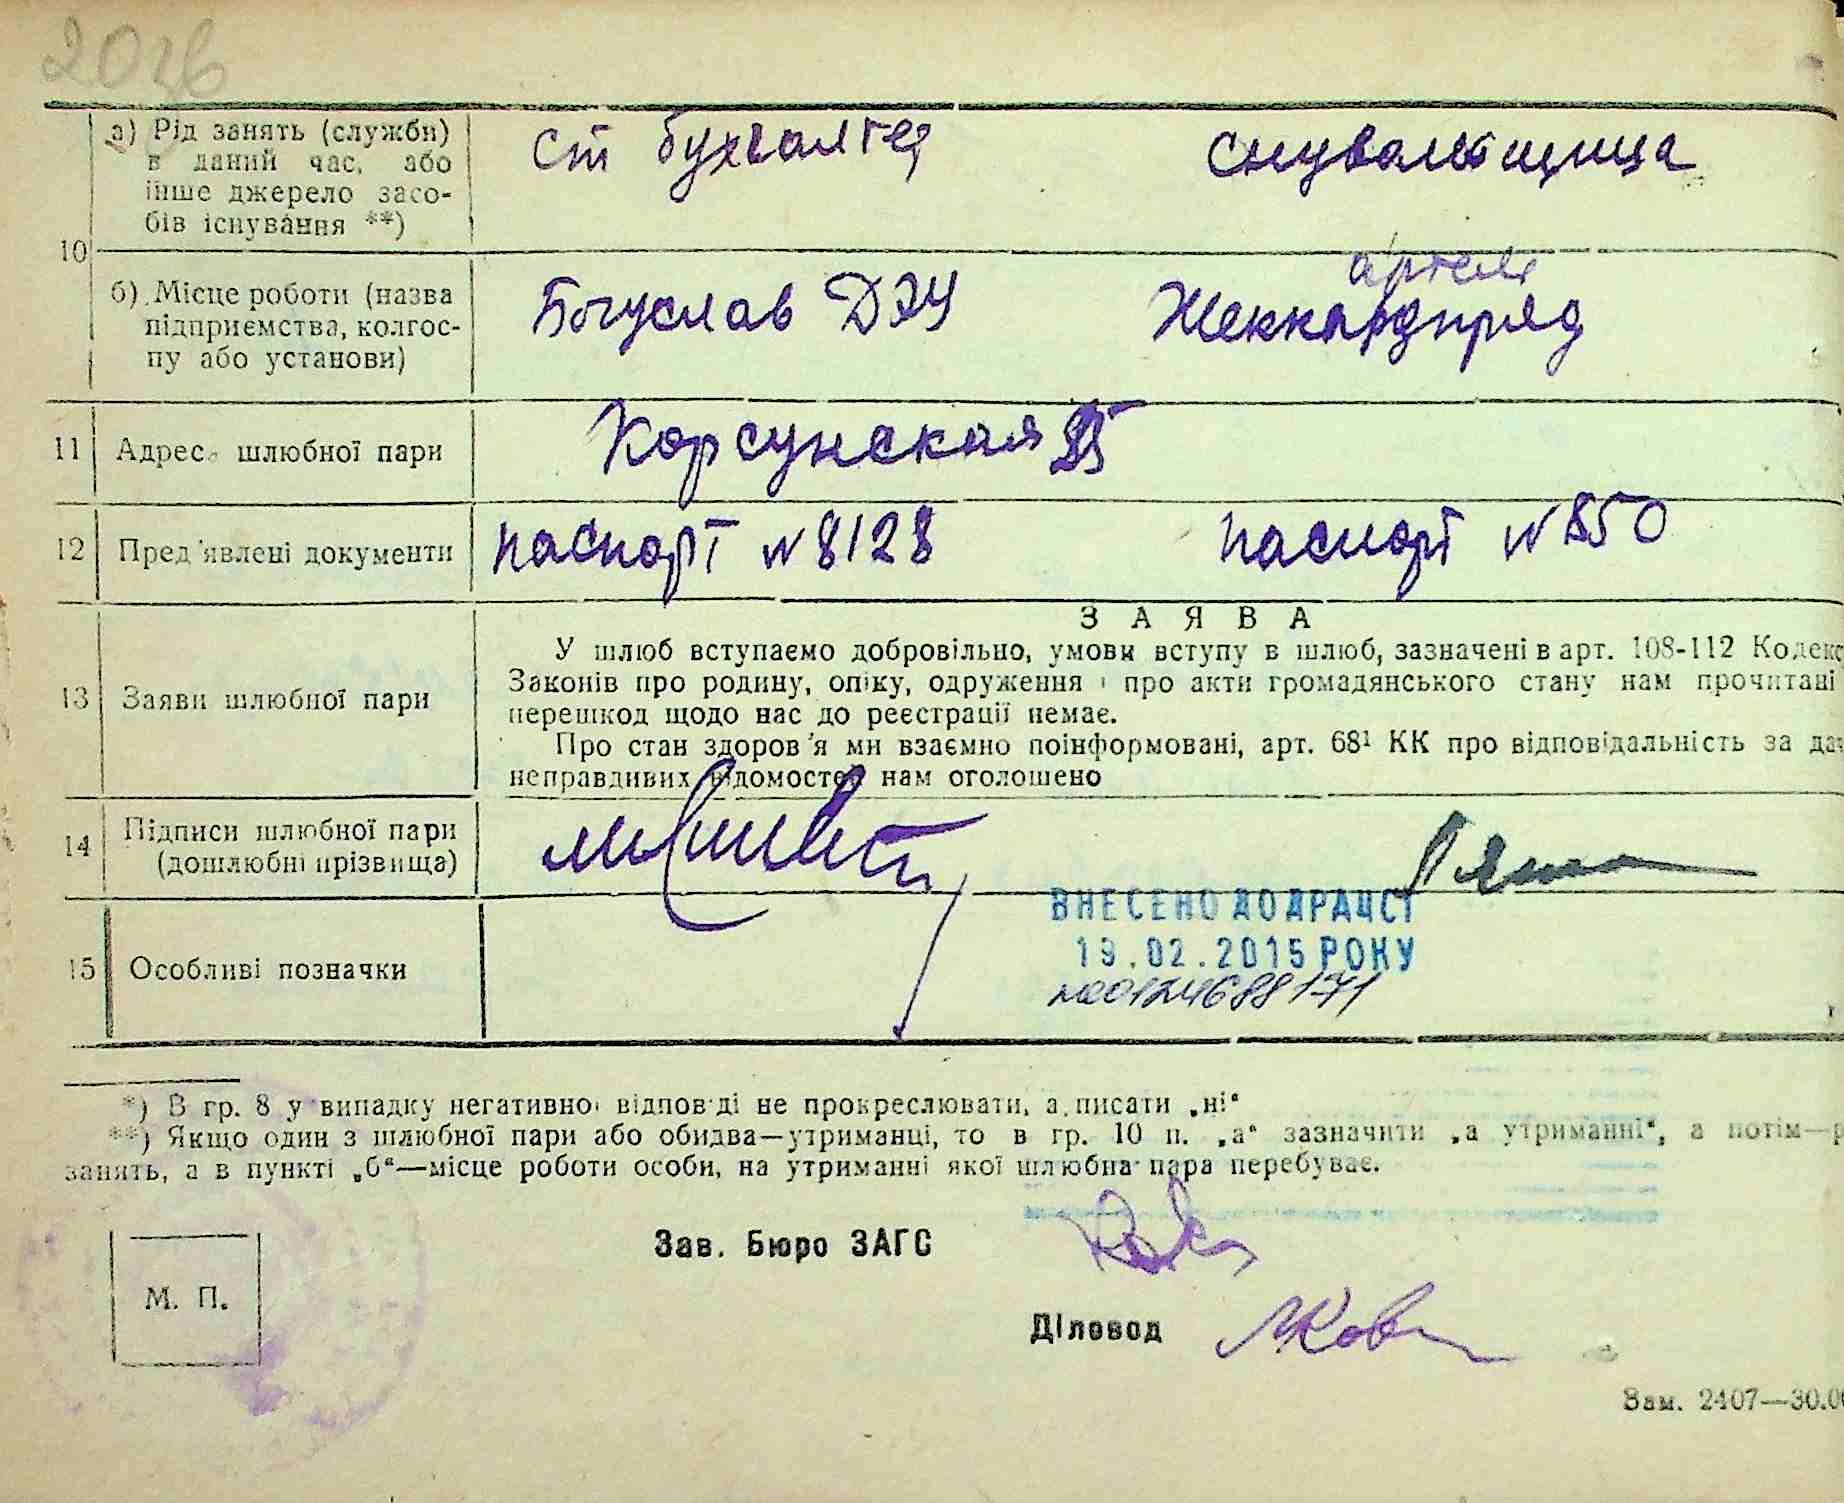 2026
а) Рід занять (служби)
в даний час, або
інше джерело засо-
бів існування **)
ст бухгалтер
снувальщица
10
б) Місце роботи (назва
підприємства, колгос-
пу або установи)
Богуслав ДЭУ
артель
Жеккардпряд
11
Адреса шлюбної пари
Корсунская
12
Пред'явлені документи
паспорт N 8128
паспорт N 850
13
Заяви шлюбної пари
ЗАЯВА
У шлюб вступаємо добровільно, умови вступу в шлюб, зазначені в арт. 108-112 Кодекс
Законів про родину, опіку, одруження і про акти громадянського стану нам прочитані
перешкод щодо нас до реєстрації немає.
Про стан здоров'я ми взаємно поінформовані, арт. 68¹ КК про відповідальність за да
неправдивих відомостей нам оголошено
14
Підписи шлюбної пари
(дошлюбні прізвища)
15
Особливі позначки
ВНЕСЕНО ДО ДРАЦСГ
19.02.2015 РОКУ
№00124688171
*) В гр. 8 у випадку негативної відповіді не прокреслювати, а писати „ні“
**) Якщо один з шлюбної пари або обидва—утриманці, то в гр. 10 п. „а“ зазначити „а утриманні“, а потім—р
занять, а в пункті „б“—місце роботи особи, на утриманні якої шлюбна пара перебуває.
Зав. Бюро ЗАГС
М. П.
Діловод
Зам. 2407—30.00